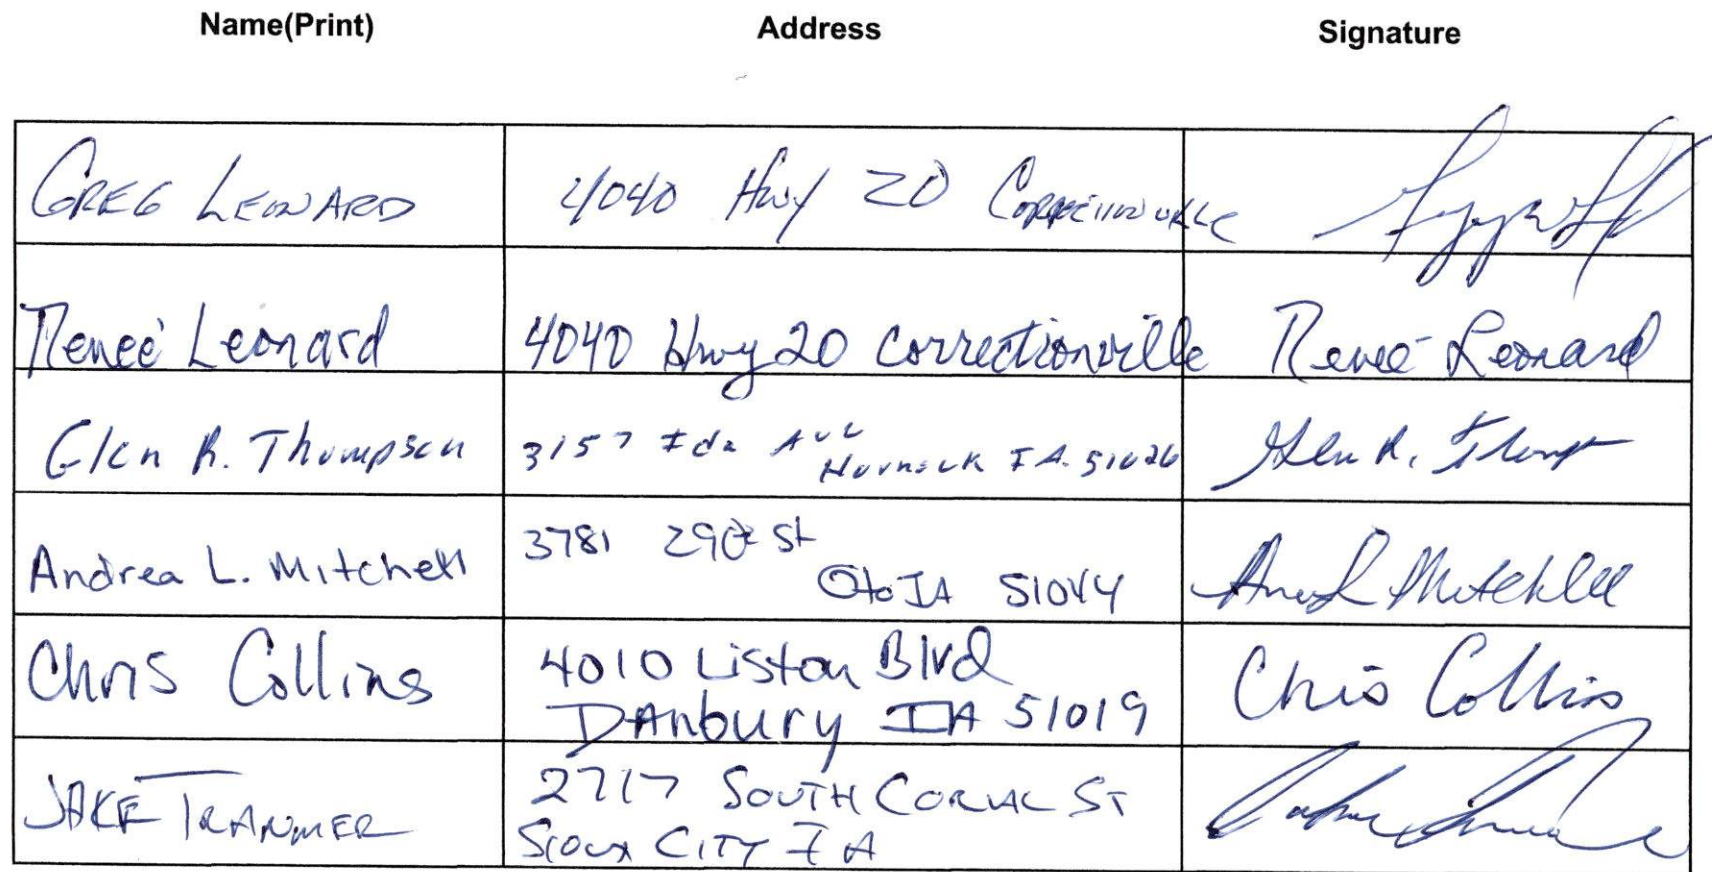 Name(Print) Address Signature
GREG LEONARD 4040 Hwy 20 Correctionville
Reneé Leonard 4040 Hwy 20 Correctionville Reneé Leonard
Glen R. Thompson 3157 Ida Ave
Hornick IA. 51026 Glen R. Thomp
Andrea L. Mitchell 3781 290th St
Oto IA 51044 Mitchell
Chris Collins 4010 Liston Blvd
DAnbury IA 51019 Chris Collins
JAKE TRANMER 2717 SOUTH CORVAC ST
Sioux CITY IA